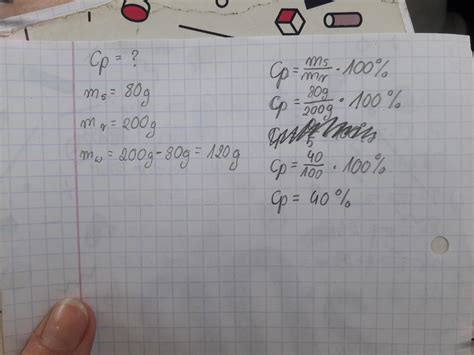 Cp = ?
ms = 80g
mr = 200g
mw = 200g - 80g = 120g
Cp = ms/mr · 100%
Cp = 80g/200g · 100%
Cp = 40/100 · 100%
Cp = 40%